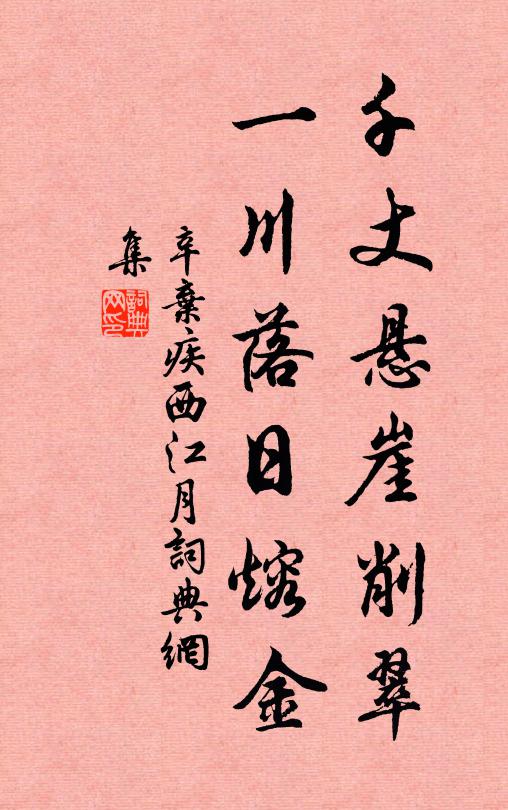 千丈悬崖削翠
一川落日熔金
辛棄疾西江月詞典網
集
詞典网印